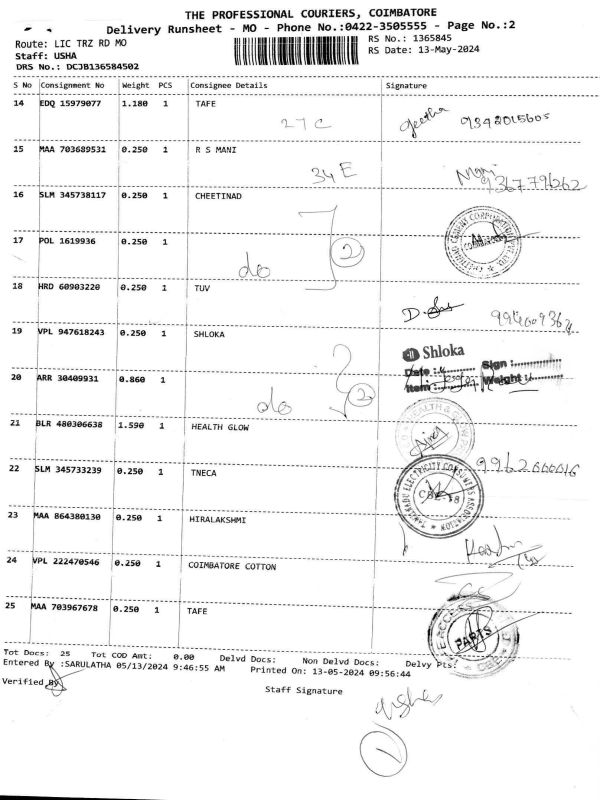 THE PROFESSIONAL COURIERS, COIMBATORE
Delivery Runsheet - MO - Phone No.:0422-3505555 - Page No.:2
Route: LIC TRZ RD MO
RS No.: 1365845
Staff: USHA
RS Date: 13-May-2024
DRS No.: DCJB136584502
S No Consignment No Weight PCS Consignee Details Signature
14 EDQ 15979077 1.180 1 TAFE
27 C
geetha 9342015605
15 MAA 703689531 0.250 1 R S MANI
34 E
9367796262
16 SLM 345738117 0.250 1 CHEETINAD
17 POL 1619936 0.250 1
do 2
18 HRD 60903220 0.250 1 TUV
19 VPL 947618243 0.250 1 SHLOKA
Shloka
Date : Sign :
Item : Weight :
20 ARR 30409931 0.860 1
do 2
21 BLR 480306638 1.590 1 HEALTH GLOW
22 SLM 345733239 0.250 1 TNECA
9962000016
TAMILNADU ELECTRICITY CONSUMERS ASSOCIATION
CBE-18
23 MAA 864380130 0.250 1 HIRALAKSHMI
24 VPL 222470546 0.250 1 COIMBATORE COTTON
25 MAA 703967678 0.250 1 TAFE
PARTS
Tot Docs: 25 Tot COD Amt: 0.00 Delvd Docs: Non Delvd Docs: Delvy Pts:
Entered By :SARULATHA 05/13/2024 9:46:55 AM Printed On: 13-05-2024 09:56:44
Verified By
Staff Signature
Usha
1